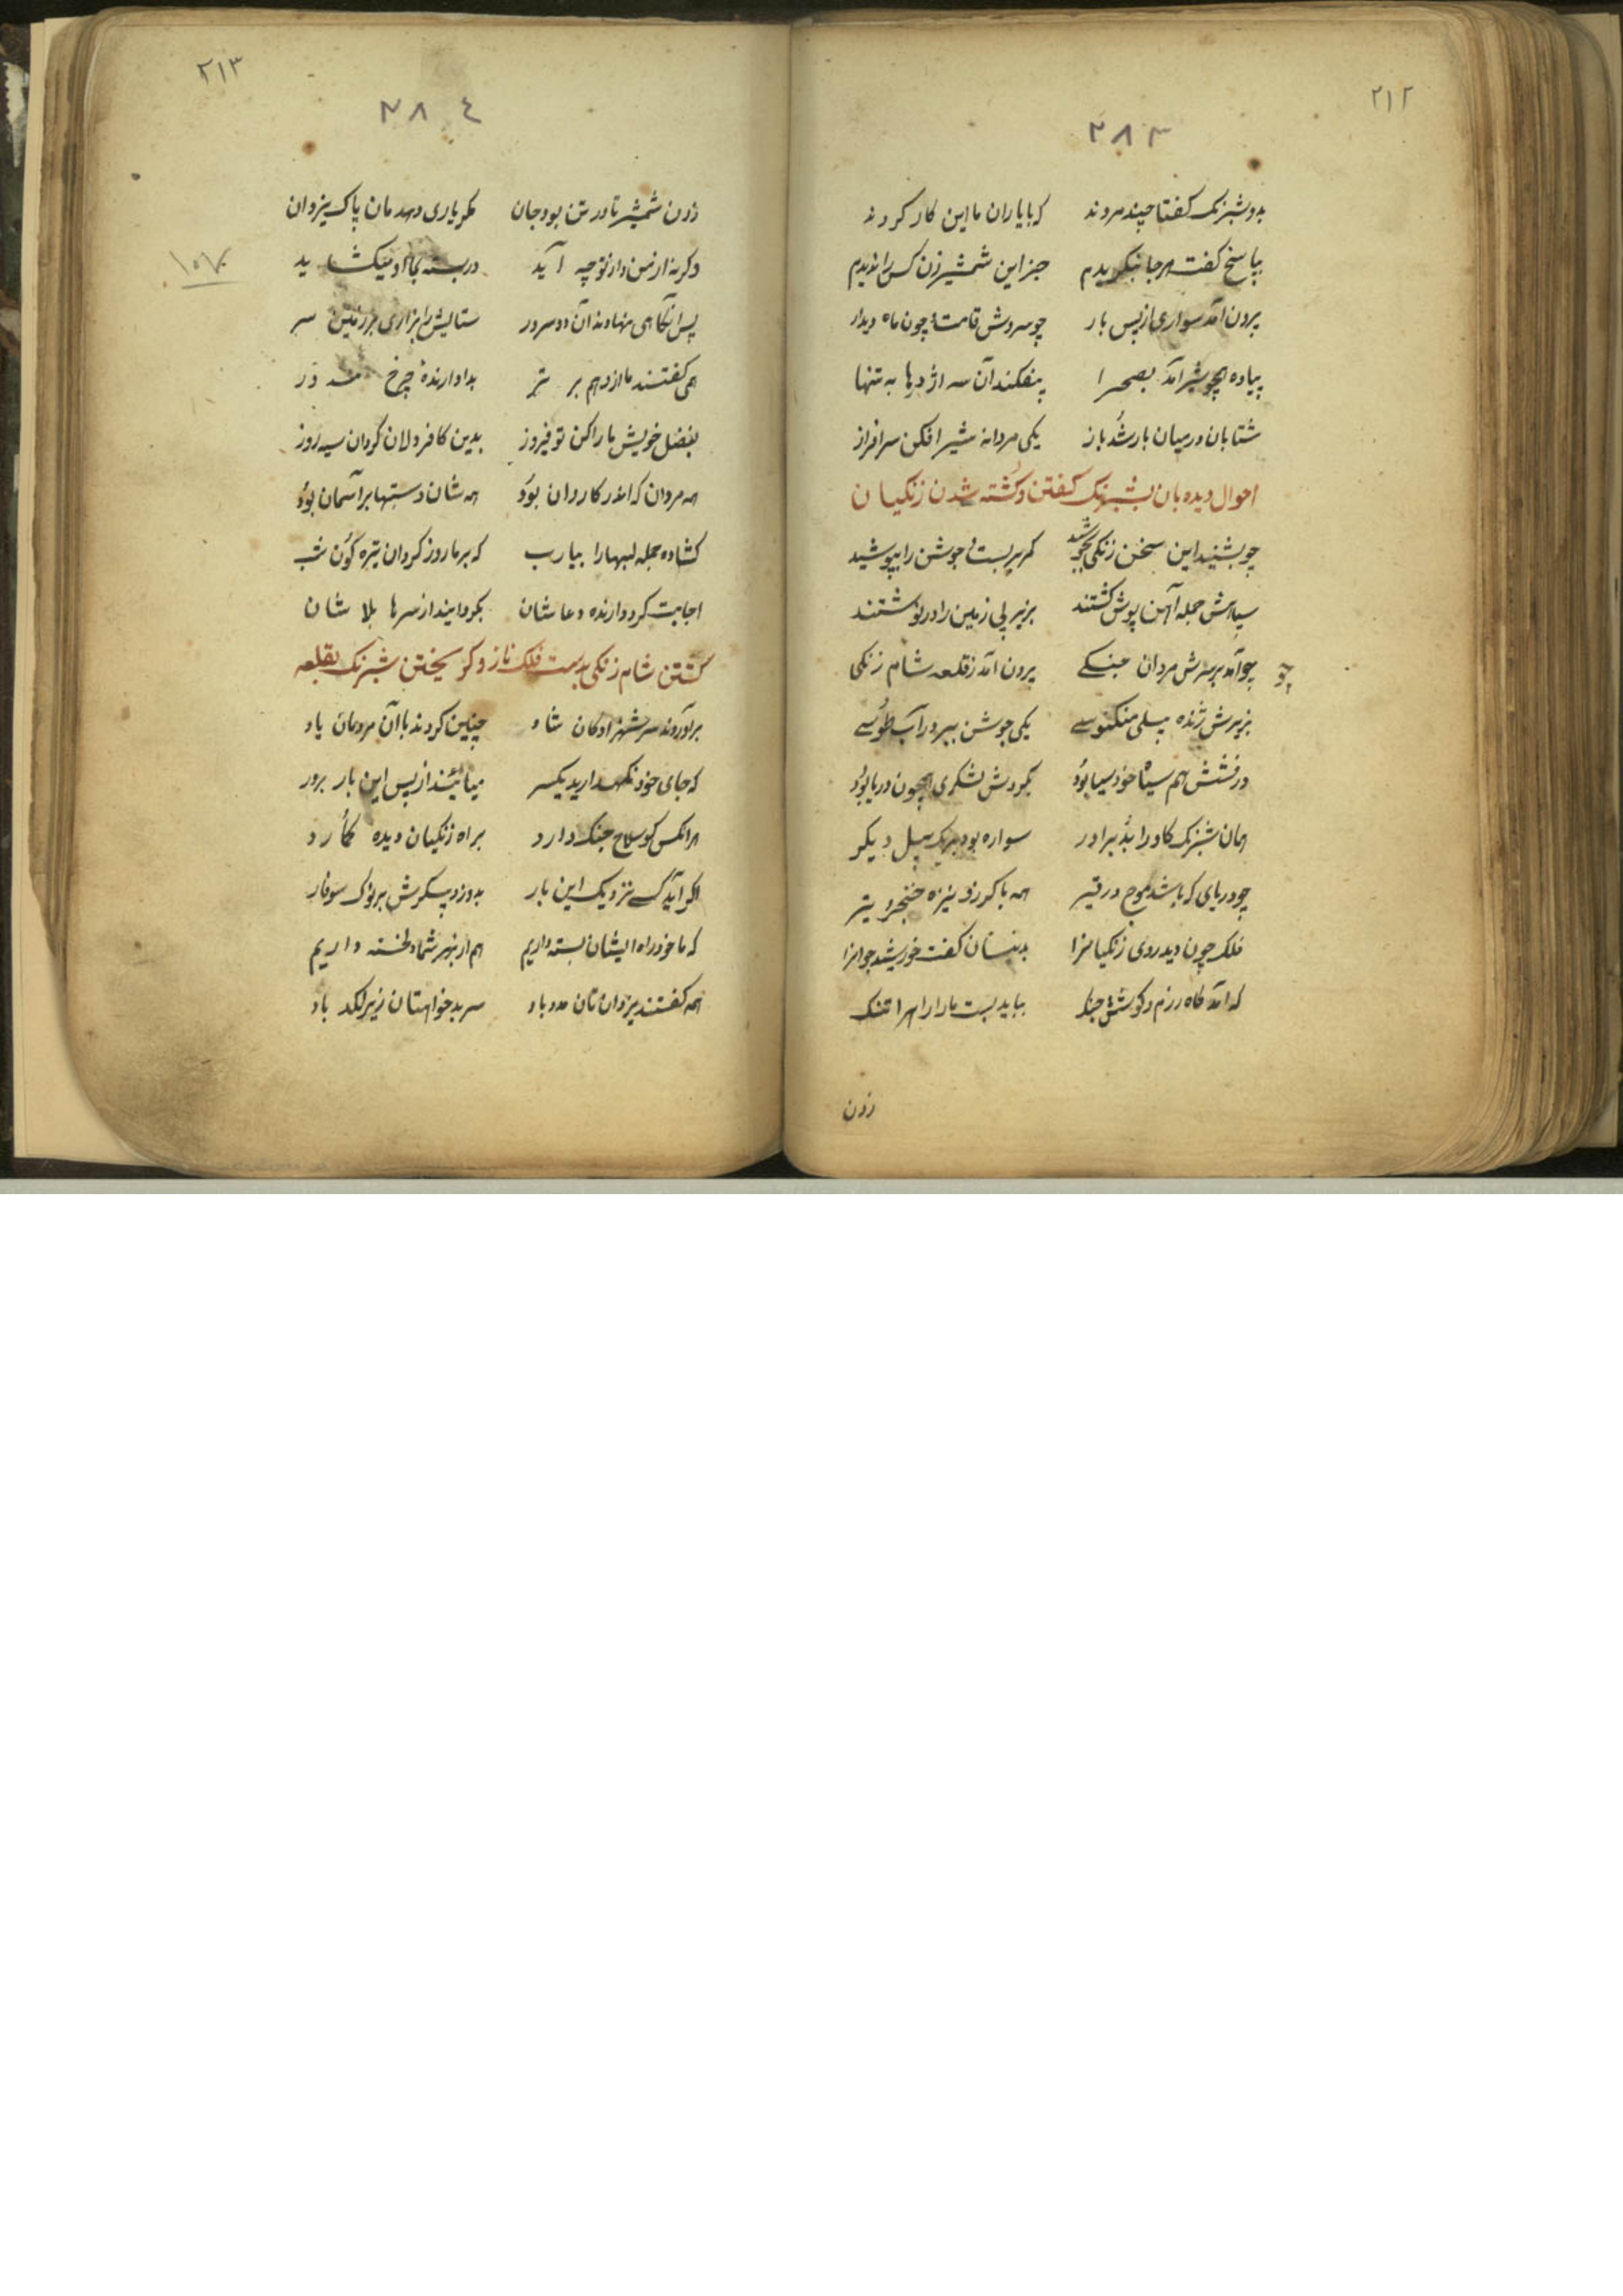 ۲۱۲
۲۸۳
بدو شبرنک کفتا چند مردند که با یاران ما این کار کردند
بپاسخ کفت هرجا بنکریدم جز این شمشیرزن کس را ندیدم
برون آمد سواری از پس بار چو سروش قامت و چون ماه دیدار
پیاده همچو شیر آمد بصحرا بیفکند آن سه اژدرها به تنها
شتابان در میان بار شد باز یکی مردانه شیر افکن سرافراز
احوال دیده بان بشبرنک کفتن و کشته شدن زنکیان
چو بشنید این سخن زنکی کمر بر بست و جوشن را بپوشید
سپاهش جمله آهن پوش کشتند بزیر پی زمین را درنوشتند
چو آمد بر سرش مردان جنکی برون آمد ز قلعه شام زنکی
چو
بزیرش ژنده پیلی منکلوسی یکی جوشن ببر در آب طوسی
درفشش هم سیاه خود سیا بود بکردش لشکری همچون دریا بود
همان شبرنک کاو را بد برادر سواره بود بر یک پیل دیکر
چو دریای که باشد موج در قیر همه با کرز و نیزه خنجر و تیر
فلک چون دید روی زنکیانرا بدینسان کفت خورشید جوانرا
که آمد کاه رزم و کوشش جنک بباید بست ما را راه را تنک
زدن
۲۱۳
۲۸٤
زدن شمشیر تا در تن بود جان مکر یاری دهد مان پاک یزدان
وکرنه از من و از تو چه آید در بسته بجا او میکشاید
پس آنکاهی نهادند آن دو سرور ستایش را بزاری بر زمین سر
همی کفتند ما از دهم برتر بدادارنده چرخ
بفضل خویش ما را کن تو فیروز بدین کافر دلان کردان سیه روز
همه مردان که اندر کاروان بود همه شان دستها بر آسمان بود
کشاده جمله لبها را بیارب که بر ما روز کردان تیره کون شب
اجابت کرد دارنده دعا شان بکردانید از سرها بلا شان
کشتن شام زنکی بدست فلک ناز و کریختن شبرنک بقلعه
برآوردند سر شهزادکان شاد چنین کردند با آن مردمان یاد
که جای خود نکهدارید یکسر میائیند از پس این بار برور
هر آنکس کو سلاح جنک دارد براه زنکیان دیده کمارد
اکر آید کسی نزدیک این بار بدوزد پیکرش بر نوک سوفار
که ما خود راه ایشان بسته داریم هم از بهر شما دل خسته داریم
همه کفتند یزدان تان مدد باد سر بدخواهتان زیر لکد باد